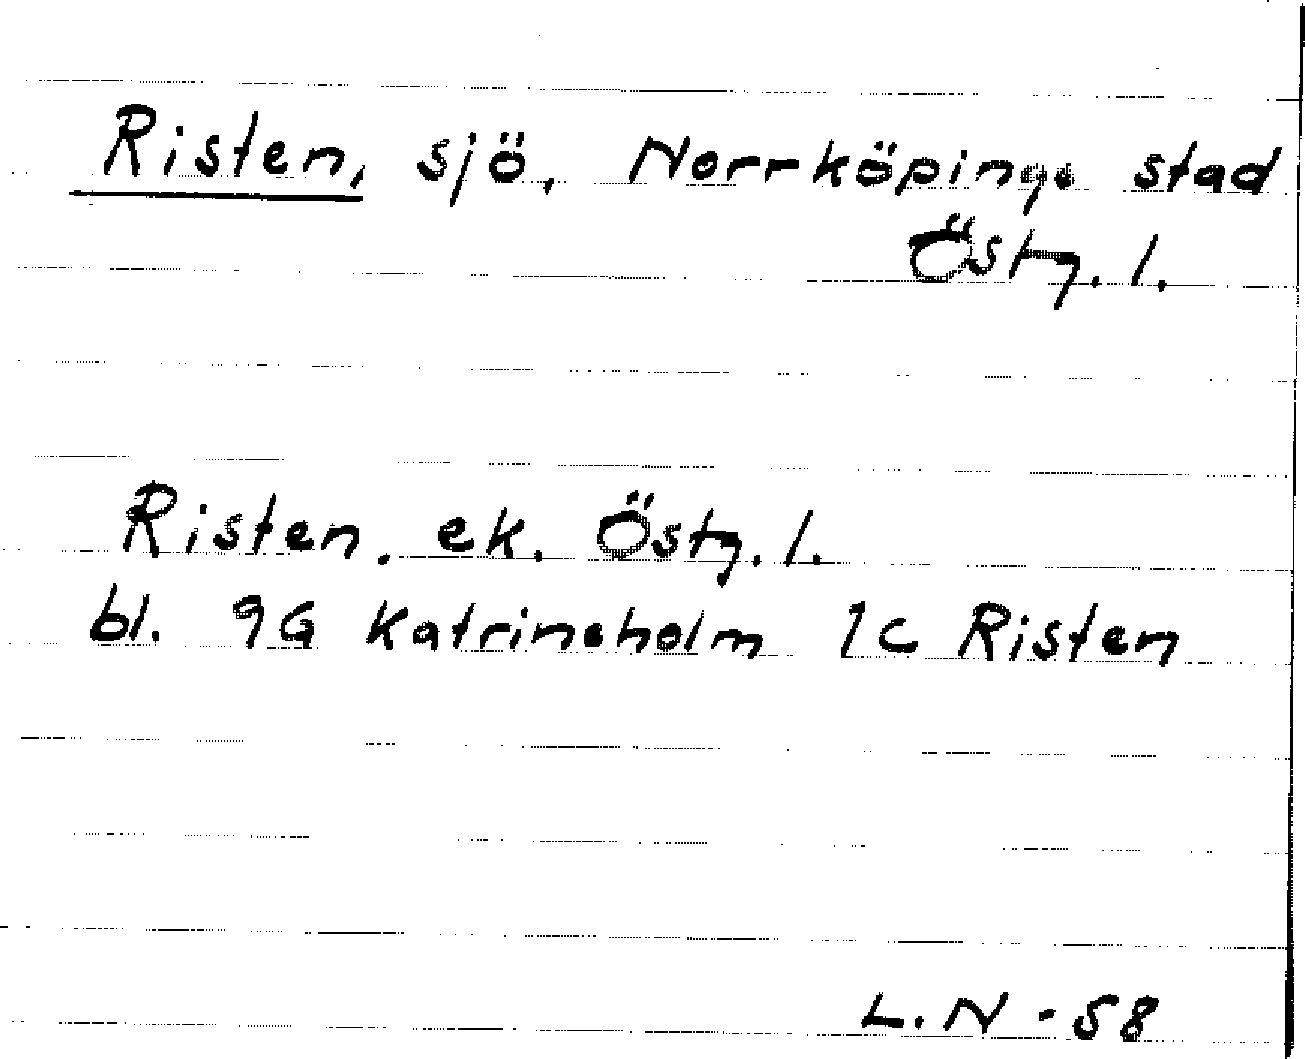 Risten, sjö, Norrköpings stad
Östg. l.
Risten. ek. Östg. l.
bl. 9G Katrineholm 1c Risten
L. N - 58